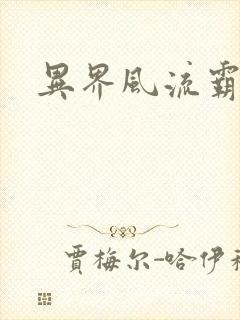 異界風流霸
賈梅尔-哈伊